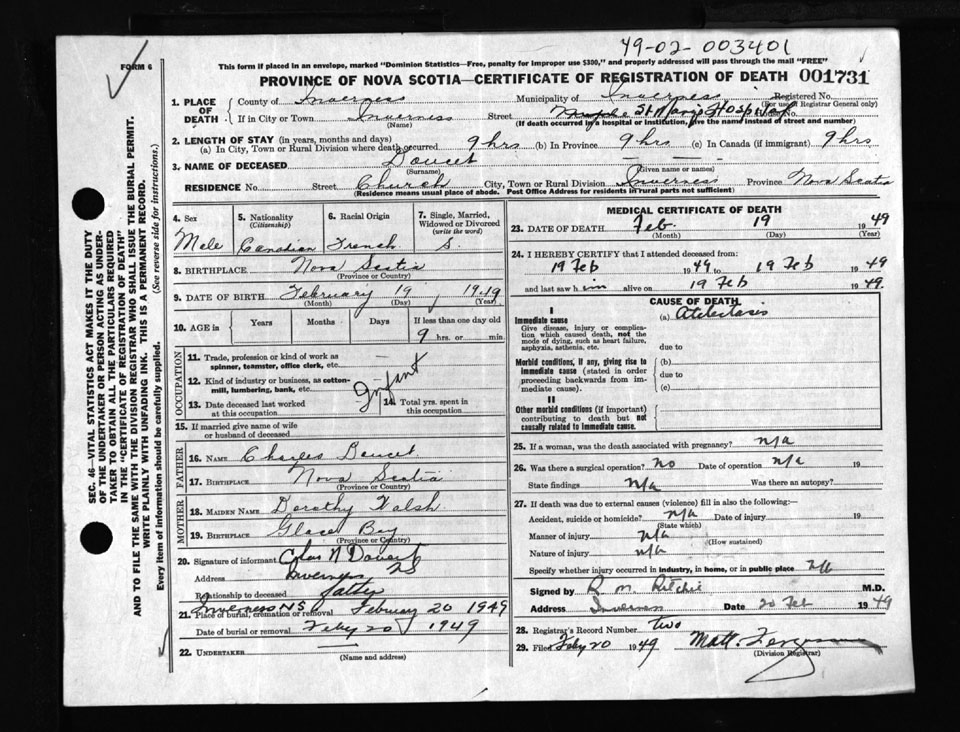 49-02-003401
FORM 6
This form if placed in an envelope, marked "Dominion Statistics—Free, penalty for improper use $300," and properly addressed will pass through the mail "FREE"
PROVINCE OF NOVA SCOTIA—CERTIFICATE OF REGISTRATION OF DEATH 001731
SEC. 46—VITAL STATISTICS ACT MAKES IT THE DUTY
OF THE UNDERTAKER OR PERSON ACTING AS UNDER-
TAKER TO OBTAIN ALL THE PARTICULARS REQUIRED
IN THE "CERTIFICATE OF REGISTRATION OF DEATH"
AND TO FILE THE SAME WITH THE DIVISION REGISTRAR WHO SHALL ISSUE THE BURIAL PERMIT.
WRITE PLAINLY WITH UNFADING INK. THIS IS A PERMANENT RECORD.
Every item of information should be carefully supplied. (See reverse side for instructions.)
1. PLACE OF DEATH County of Inverness Municipality of Inverness Registered No.
(For use of Registrar General only)
If in City or Town Inverness Street St Marys Hospital No.
(Name) (If death occurred in a hospital or institution, give the name instead of street and number)
2. LENGTH OF STAY (in years, months and days)
(a) In City, Town or Rural Division where death occurred 9 hrs (b) In Province 9 hrs (c) In Canada (if immigrant) 9 hrs
3. NAME OF DECEASED Doucet — — —
(Surname) (Given name or names)
RESIDENCE No. Street Church City, Town or Rural Division Inverness Province Nova Scotia
(Residence means usual place of abode. Post Office Address for residents in rural parts not sufficient)
4. Sex Male
5. Nationality (Citizenship) Canadian
6. Racial Origin French
7. Single, Married, Widowed or Divorced (write the word) S.
8. BIRTHPLACE Nova Scotia
(Province or Country)
9. DATE OF BIRTH February 19 1949
(Month) (Day) (Year)
10. AGE in Years Months Days If less than one day old
9 hrs. or min.
OCCUPATION
11. Trade, profession or kind of work as
spinner, teamster, office clerk, etc. —
12. Kind of industry or business, as cotton-
mill, lumbering, bank, etc. Infant
13. Date deceased last worked
at this occupation
14. Total yrs. spent in
this occupation
15. If married give name of wife
or husband of deceased
FATHER
16. NAME Charles Doucet
17. BIRTHPLACE Nova Scotia
(Province or Country)
MOTHER
18. MAIDEN NAME Dorothy Walsh
19. BIRTHPLACE Glace Bay
(Province or Country)
20. Signature of informant Chas N Doucet
Address Inverness NS
Relationship to deceased father
21. Place of burial, cremation or removal Inverness NS February 20 1949
Date of burial or removal Feby 20 1949
22. UNDERTAKER —
(Name and Address)
MEDICAL CERTIFICATE OF DEATH
23. DATE OF DEATH Feb. 19 1949
(Month) (Day) (Year)
24. I HEREBY CERTIFY that I attended deceased from:
19 Feb 1949 to 19 Feb 1949
and last saw him alive on 19 Feb 1949.
CAUSE OF DEATH
I
Immediate cause (a) Atelectasis
Give disease, injury or complica-
tion which caused death, not the
mode of dying, such as heart failure,
asphyxia, asthenia, etc. due to
Morbid conditions, if any, giving rise to (b)
immediate cause (stated in order due to
proceeding backwards from im-
mediate cause). (c)
II
Other morbid conditions (if important)
contributing to death but not
causally related to immediate cause.
25. If a woman, was the death associated with pregnancy? n/a
26. Was there a surgical operation? no Date of operation n/a 19
State findings n/a Was there an autopsy?
27. If death was due to external causes (violence) fill in also the following:—
Accident, suicide or homicide? n/a Date of injury 19
(State which)
Manner of injury n/a
(How sustained)
Nature of injury n/a
Specify whether injury occurred in industry, in home, or in public place n/a
Signed by R. M. Ritchie M.D.
Address Inverness Date 20 Feb 1949
28. Registrar's Record Number Two
29. Filed Feby 20 1949 Matt. Ferguson
(Division Registrar)